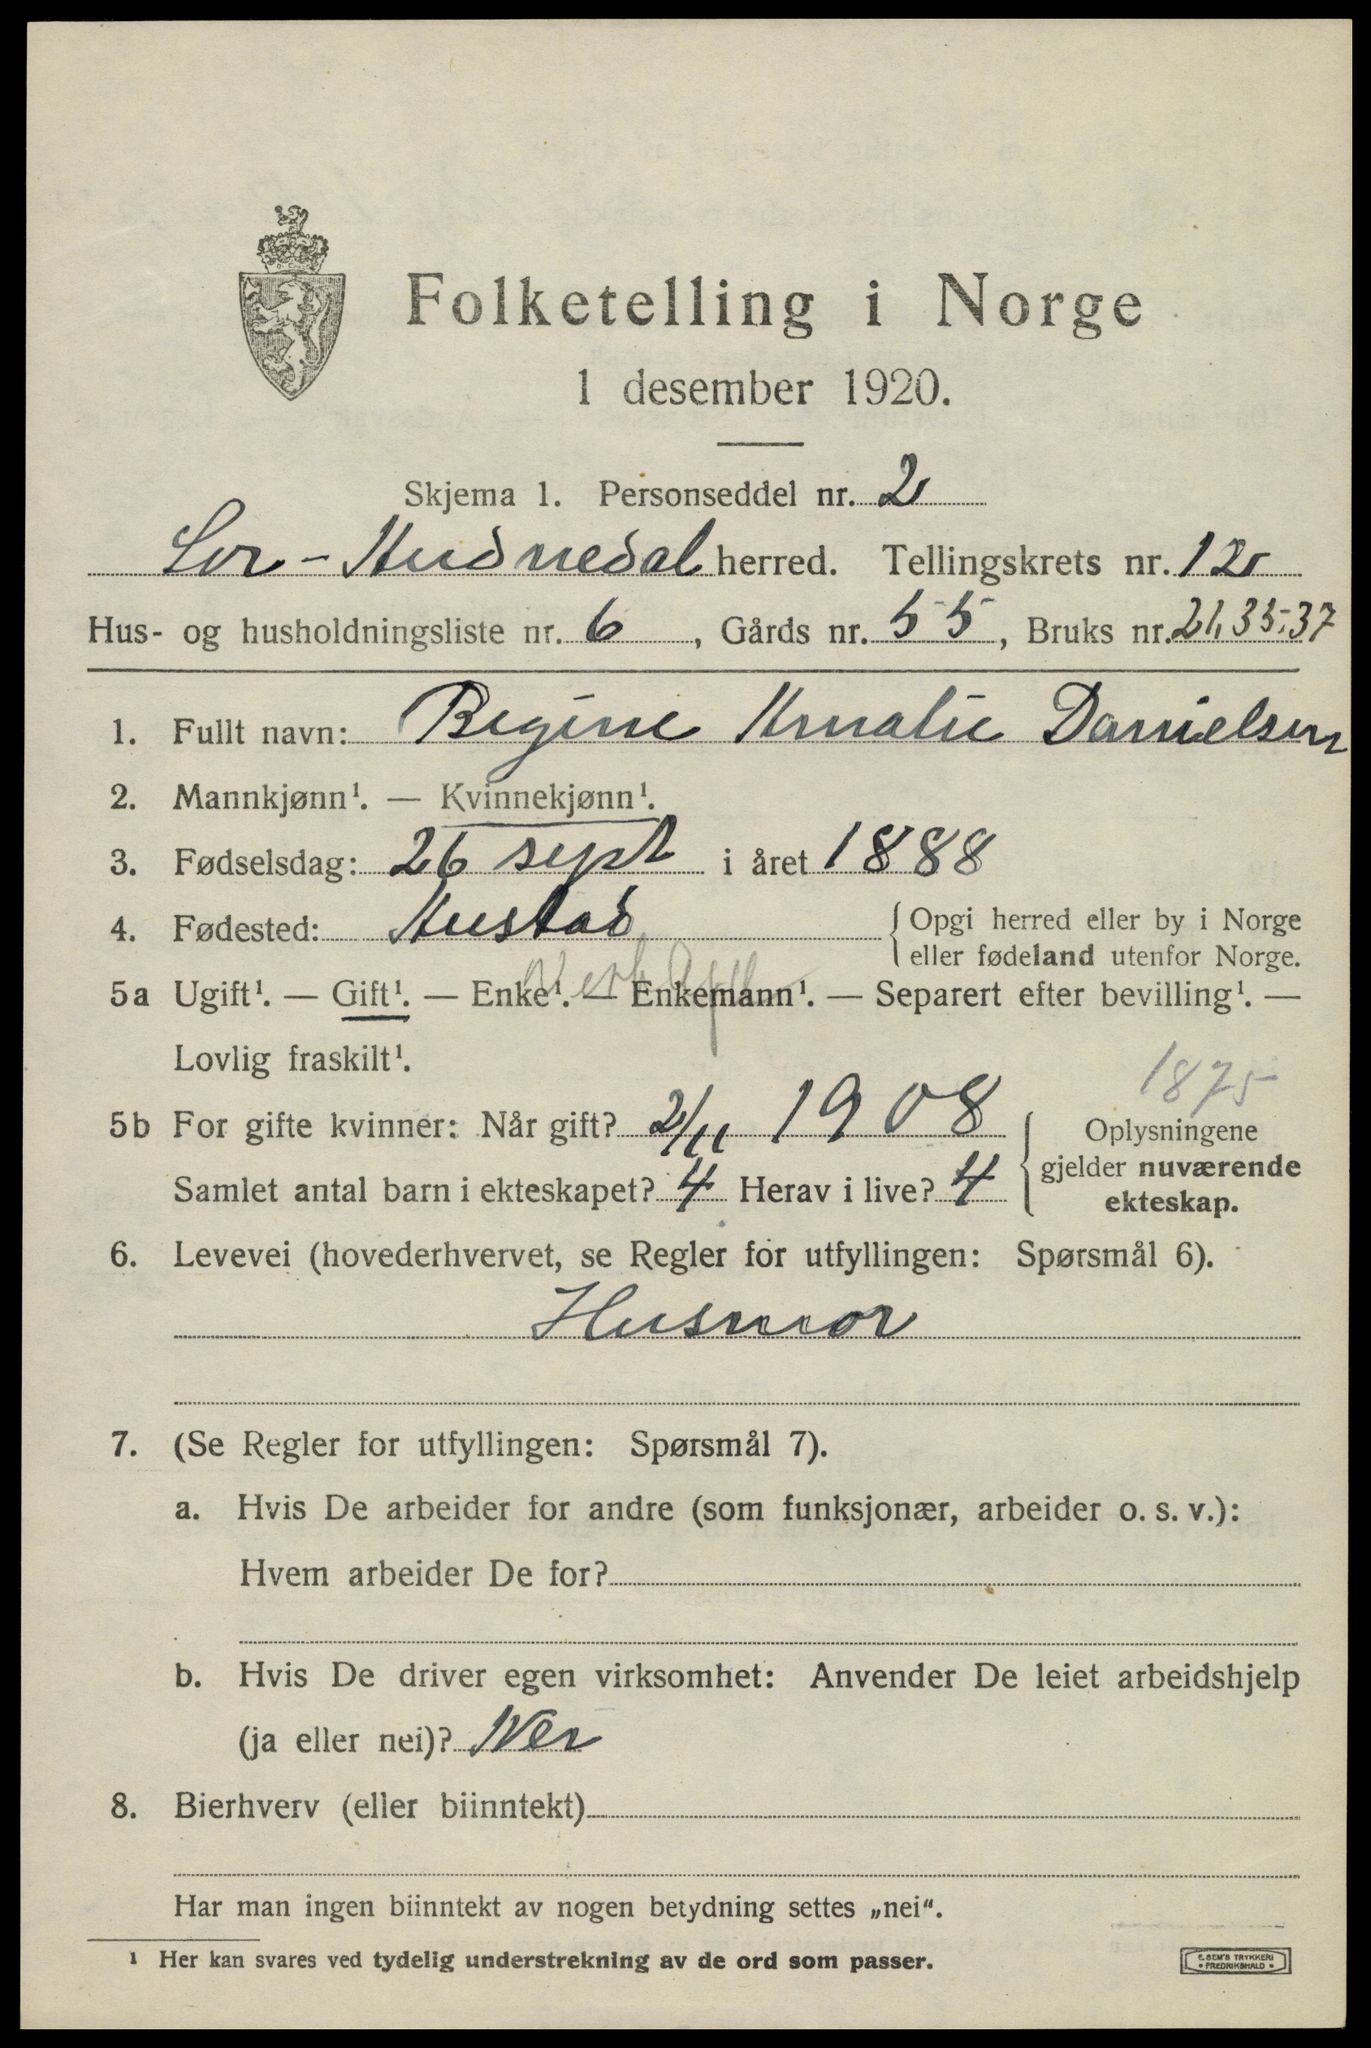 Folketelling i Norge
1 desember 1920.
Skjema 1. Personseddel nr. 2
Sør-Audnedal herred. Tellingskrets nr. 12
Hus- og husholdningsliste nr. 6, Gårds nr. 55, Bruks nr. 21,35,37
1. Fullt navn: Regine Amalie Danielsen
2. Mannkjønn¹. — Kvinnekjønn¹.
3. Fødselsdag: 26 sept i året 1888
4. Fødested: Austad { Opgi herred eller by i Norge
eller fødeland utenfor Norge.
5a Ugift¹. — Gift¹. — Enke¹. — Enkemann¹. — Separert efter bevilling¹. —
Lovlig fraskilt¹.
1875
5b For gifte kvinner: Når gift? 2/11 1908 { Oplysningene
gjelder nuværende
Samlet antal barn i ekteskapet? 4 Herav i live? 4
ekteskap.
6. Levevei (hovederhvervet, se Regler for utfyllingen: Spørsmål 6).
Husmor
7. (Se Regler for utfyllingen: Spørsmål 7).
a. Hvis De arbeider for andre (som funksjonær, arbeider o. s. v.):
Hvem arbeider De for?
b. Hvis De driver egen virksomhet: Anvender De leiet arbeidshjelp
(ja eller nei)? Nei
8. Bierhverv (eller biinntekt)
Har man ingen biinntekt av nogen betydning settes „nei“.
¹ Her kan svares ved tydelig understrekning av de ord som passer.
E. SEM'S TRYKKERI
• FREDRIKSHALD •